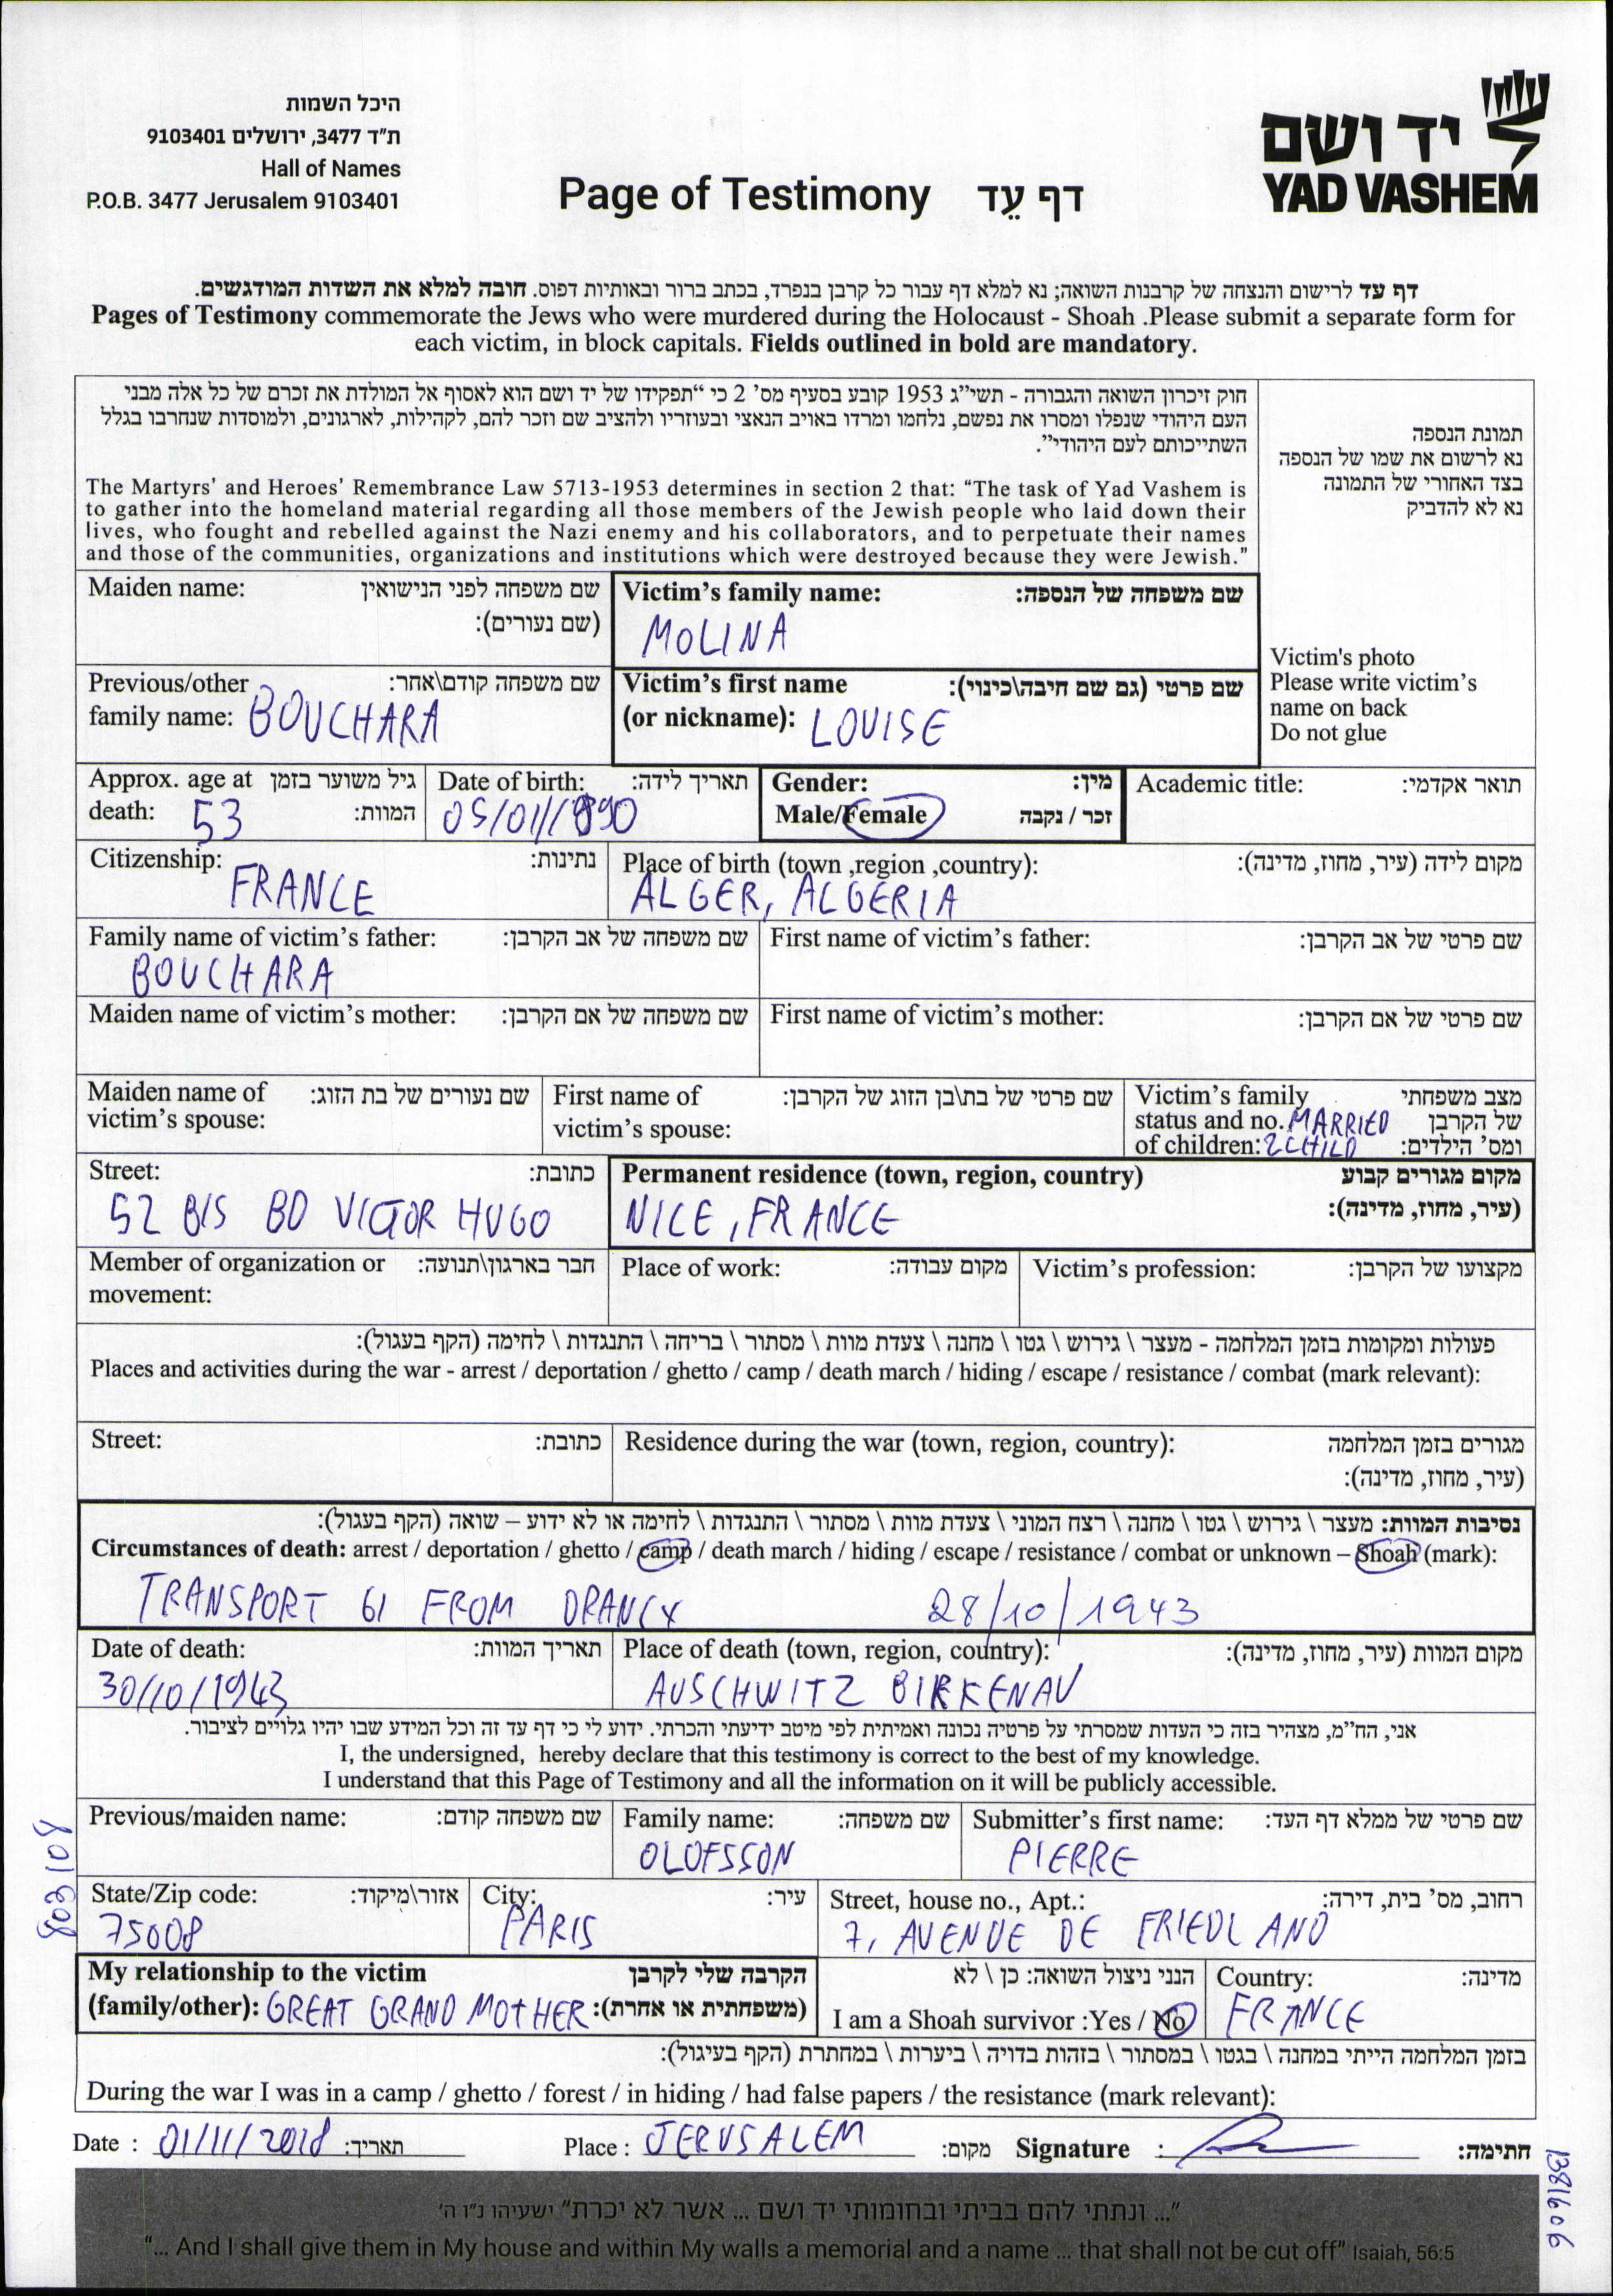 היכל השמות
ת"ד 3477, ירושלים 9103401
Hall of Names
P.O.B. 3477 Jerusalem 9103401
Page of Testimony דף עֵד
יד ושם
YAD VASHEM
דף עד לרישום והנצחה של קרבנות השואה; נא למלא דף עבור כל קרבן בנפרד, בכתב ברור ובאותיות דפוס. חובה למלא את השדות המודגשים.
Pages of Testimony commemorate the Jews who were murdered during the Holocaust - Shoah .Please submit a separate form for
each victim, in block capitals. Fields outlined in bold are mandatory.
חוק זיכרון השואה והגבורה - תשי"ג 1953 קובע בסעיף מס' 2 כי "תפקידו של יד ושם הוא לאסוף אל המולדת את זכרם של כל אלה מבני
העם היהודי שנפלו ומסרו את נפשם, נלחמו ומרדו באויב הנאצי ובעוזריו ולהציב שם וזכר להם, לקהילות, לארגונים, ולמוסדות שנחרבו בגלל
השתייכותם לעם היהודי".
The Martyrs' and Heroes' Remembrance Law 5713-1953 determines in section 2 that: "The task of Yad Vashem is
to gather into the homeland material regarding all those members of the Jewish people who laid down their
lives, who fought and rebelled against the Nazi enemy and his collaborators, and to perpetuate their names
and those of the communities, organizations and institutions which were destroyed because they were Jewish."
תמונת הנספה
נא לרשום את שמו של הנספה
בצד האחורי של התמונה
נא לא להדביק
Victim's photo
Please write victim's
name on back
Do not glue
Maiden name: שם משפחה לפני הנישואין
(שם נעורים):
Victim's family name: שם משפחה של הנספה:
MOLINA
Previous/other שם משפחה קודם\אחר:
family name: BOUCHARA
Victim's first name שם פרטי (גם שם חיבה\כינוי):
(or nickname): LOUISE
Approx. age at גיל משוער בזמן
death: 53 המוות:
Date of birth: תאריך לידה:
05/01/1890
Gender: מין:
Male/Female זכר / נקבה
Academic title: תואר אקדמי:
Citizenship: נתינות:
FRANCE
Place of birth (town ,region ,country): מקום לידה (עיר, מחוז, מדינה):
ALGER, ALGERIA
Family name of victim's father: שם משפחה של אב הקרבן:
BOUCHARA
First name of victim's father: שם פרטי של אב הקרבן:
Maiden name of victim's mother: שם משפחה של אם הקרבן:
First name of victim's mother: שם פרטי של אם הקרבן:
Maiden name of שם נעורים של בת הזוג:
victim's spouse:
First name of שם פרטי של בת\בן הזוג של הקרבן:
victim's spouse:
Victim's family מצב משפחתי
status and no. MARRIED של הקרבן
of children: 2 CHILD ומס' הילדים:
Street: כתובת:
52 BIS BD VICTOR HUGO
Permanent residence (town, region, country) מקום מגורים קבוע
(עיר, מחוז, מדינה):
NICE, FRANCE
Member of organization or חבר בארגון\תנועה:
movement:
Place of work: מקום עבודה:
Victim's profession: מקצועו של הקרבן:
פעולות ומקומות בזמן המלחמה - מעצר \ גירוש \ גטו \ מחנה \ צעדת מוות \ מסתור \ בריחה \ התנגדות \ לחימה (הקף בעגול):
Places and activities during the war - arrest / deportation / ghetto / camp / death march / hiding / escape / resistance / combat (mark relevant):
Street: כתובת:
Residence during the war (town, region, country): מגורים בזמן המלחמה
(עיר, מחוז, מדינה):
נסיבות המוות: מעצר \ גירוש \ גטו \ מחנה \ רצח המוני \ צעדת מוות \ מסתור \ התנגדות \ לחימה או לא ידוע – שואה (הקף בעגול):
Circumstances of death: arrest / deportation / ghetto / camp / death march / hiding / escape / resistance / combat or unknown – Shoah (mark):
TRANSPORT 61 FROM DRANCY 28/10/1943
Date of death: תאריך המוות:
30/10/1943
Place of death (town, region, country): מקום המוות (עיר, מחוז, מדינה):
AUSCHWITZ BIRKENAU
אני, הח"מ, מצהיר בזה כי העדות שמסרתי על פרטיה נכונה ואמיתית לפי מיטב ידיעתי והכרתי. ידוע לי כי דף עד זה וכל המידע שבו יהיו גלויים לציבור.
I, the undersigned, hereby declare that this testimony is correct to the best of my knowledge.
I understand that this Page of Testimony and all the information on it will be publicly accessible.
Previous/maiden name: שם משפחה קודם:
Family name: שם משפחה:
OLOFSSON
Submitter's first name: שם פרטי של ממלא דף העד:
PIERRE
State/Zip code: אזור\מיקוד:
75008
City: עיר:
PARIS
Street, house no., Apt.: רחוב, מס' בית, דירה:
7, AVENUE DE FRIEDLAND
My relationship to the victim הקרבה שלי לקרבן
(family/other): GREAT GRAND MOTHER (משפחתית או אחרת):
הנני ניצול השואה: כן \ לא
I am a Shoah survivor :Yes / No
Country: מדינה:
FRANCE
בזמן המלחמה הייתי במחנה \ בגטו \ במסתור \ בזהות בדויה \ ביערות \ במחתרת (הקף בעיגול):
During the war I was in a camp / ghetto / forest / in hiding / had false papers / the resistance (mark relevant):
Date : 01/11/2018 תאריך:
Place : JERUSALEM מקום:
Signature : חתימה:
"... ונתתי להם בביתי ובחומותי יד ושם ... אשר לא יכרת" ישעיהו נ"ו ה'
"... And I shall give them in My house and within My walls a memorial and a name ... that shall not be cut off" Isaiah, 56:5
803108